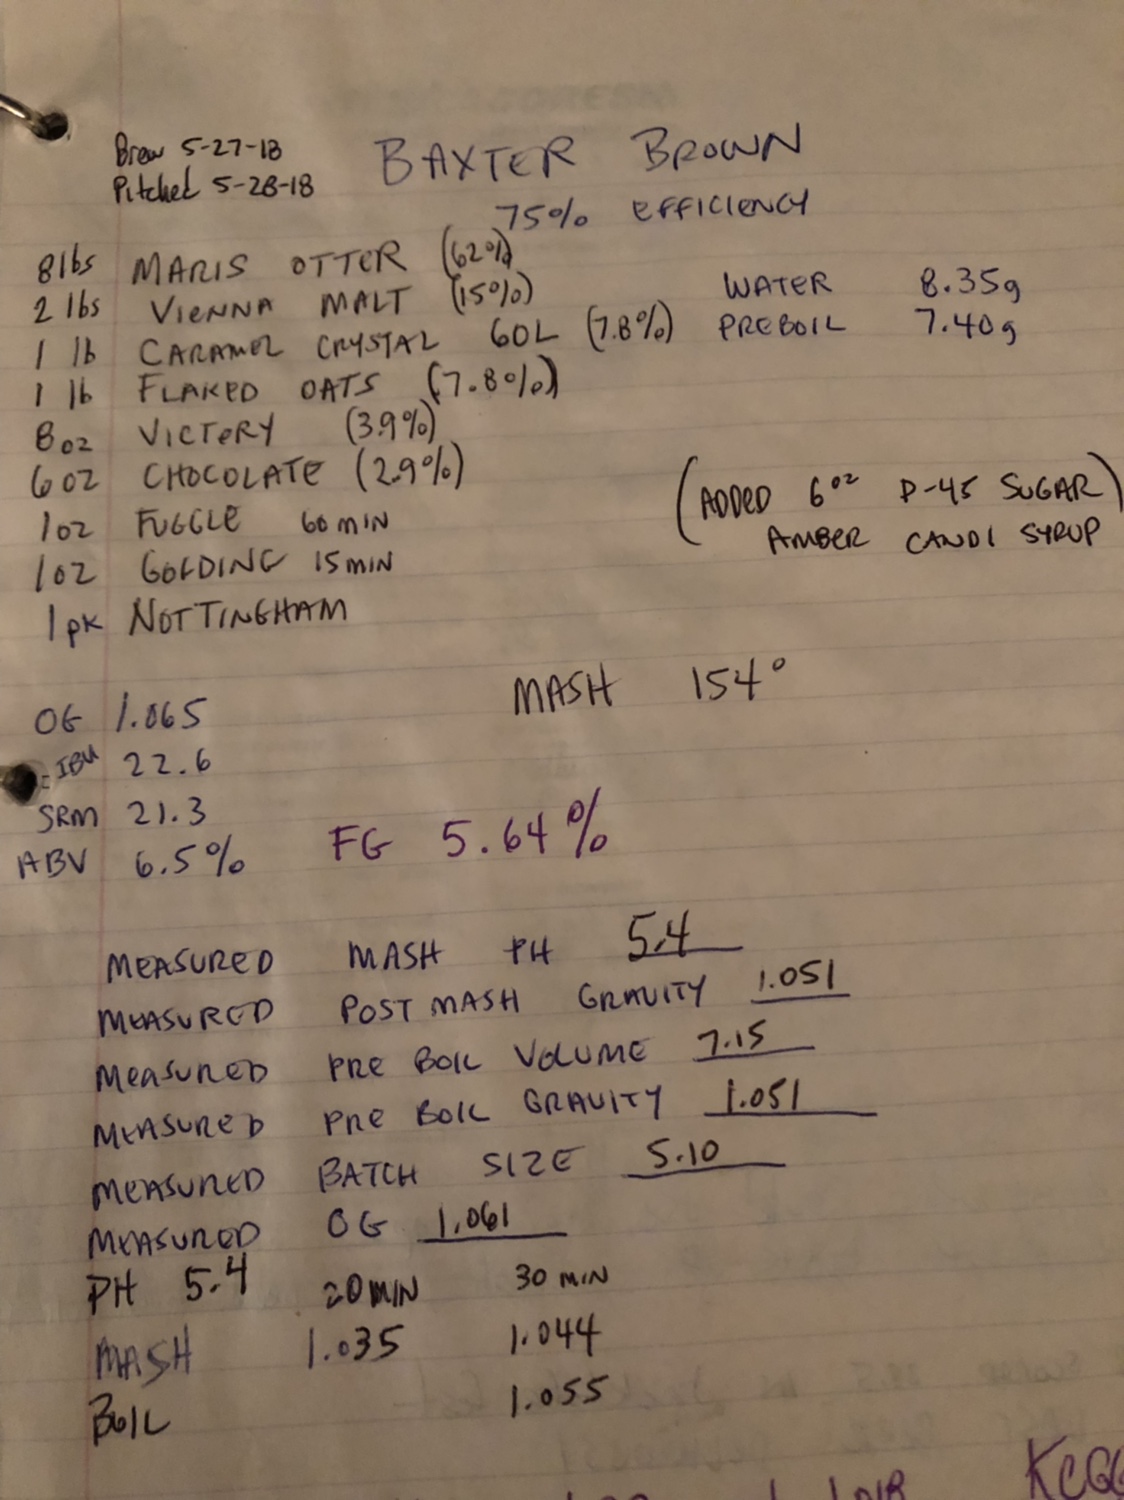 BAXTER BROWN
Brew 5-27-18
Pitched 5-28-18
75% EFFICIENCY
8 lbs MARIS OTTER (62%)
2 lbs VIENNA MALT (15%)
WATER 8.35g
1 lb CARAMEL CRYSTAL 60L (7.8%)
PREBOIL 7.40g
1 lb FLAKED OATS (7.8%)
8 oz VICTORY (3.9%)
6 oz CHOCOLATE (2.9%)
(ADDED 6 oz D-45 SUGAR)
AMBER CANDI SYRUP
1 oz FUGGLE 60 MIN
1 oz GOLDING 15 MIN
1 pk NOTTINGHAM
MASH 154°
OG 1.065
IBU 22.6
SRM 21.3
ABV 6.5%
FG 5.64%
MEASURED MASH PH 5.4
MEASURED POST MASH GRAVITY 1.051
MEASURED PRE BOIL VOLUME 7.15
MEASURED PRE BOIL GRAVITY 1.051
MEASURED BATCH SIZE 5.10
MEASURED OG 1.061
PH 5.4 20 MIN 30 MIN
MASH 1.035 1.044
BOIL 1.055